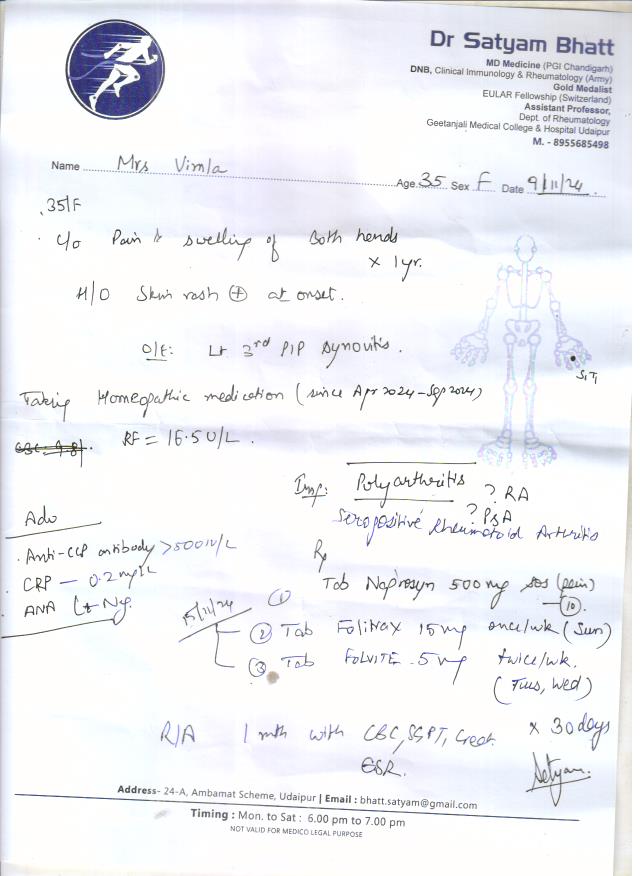 Dr Satyam Bhatt
MD Medicine (PGI Chandigarh)
DNB, Clinical Immunology & Rheumatology (Army)
Gold Medalist
EULAR Fellowship (Switzerland)
Assistant Professor,
Dept. of Rheumatology
Geetanjali Medical College & Hospital Udaipur
M. - 8955685498
Name Mrs Vimla Age 35 Sex F Date 9/11/24
35/F
C/o Pain & swelling of both hands
x 1yr.
H/O Skin rash ⊕ at onset.
O/E: Lt 3rd PIP synovitis.
S1T1
Taking Homeopathic medication (since Apr 2024-Sep 2024)
RF = 16.5 U/L.
Imp: Polyarthritis ? RA
? PsA
Seropositive Rheumatoid Arthritis
Adv
Anti-CCP antibody >500 IU/L
CRP - 0.2 mg/L
ANA Neg.
Rx
① Tab Naprosyn 500mg sos (pain)
⑩
15/11/24
② Tab Folitrax 15mg once/wk (Sun)
③ Tab FOLVITE 5mg twice/wk.
(Tues, Wed)
x 30 days
R/A 1 mth with CBC, SGPT, Creat.
ESR.
Satyam.
Address- 24-A, Ambamat Scheme, Udaipur | Email : bhatt.satyam@gmail.com
Timing : Mon. to Sat : 6.00 pm to 7.00 pm
NOT VALID FOR MEDICO LEGAL PURPOSE